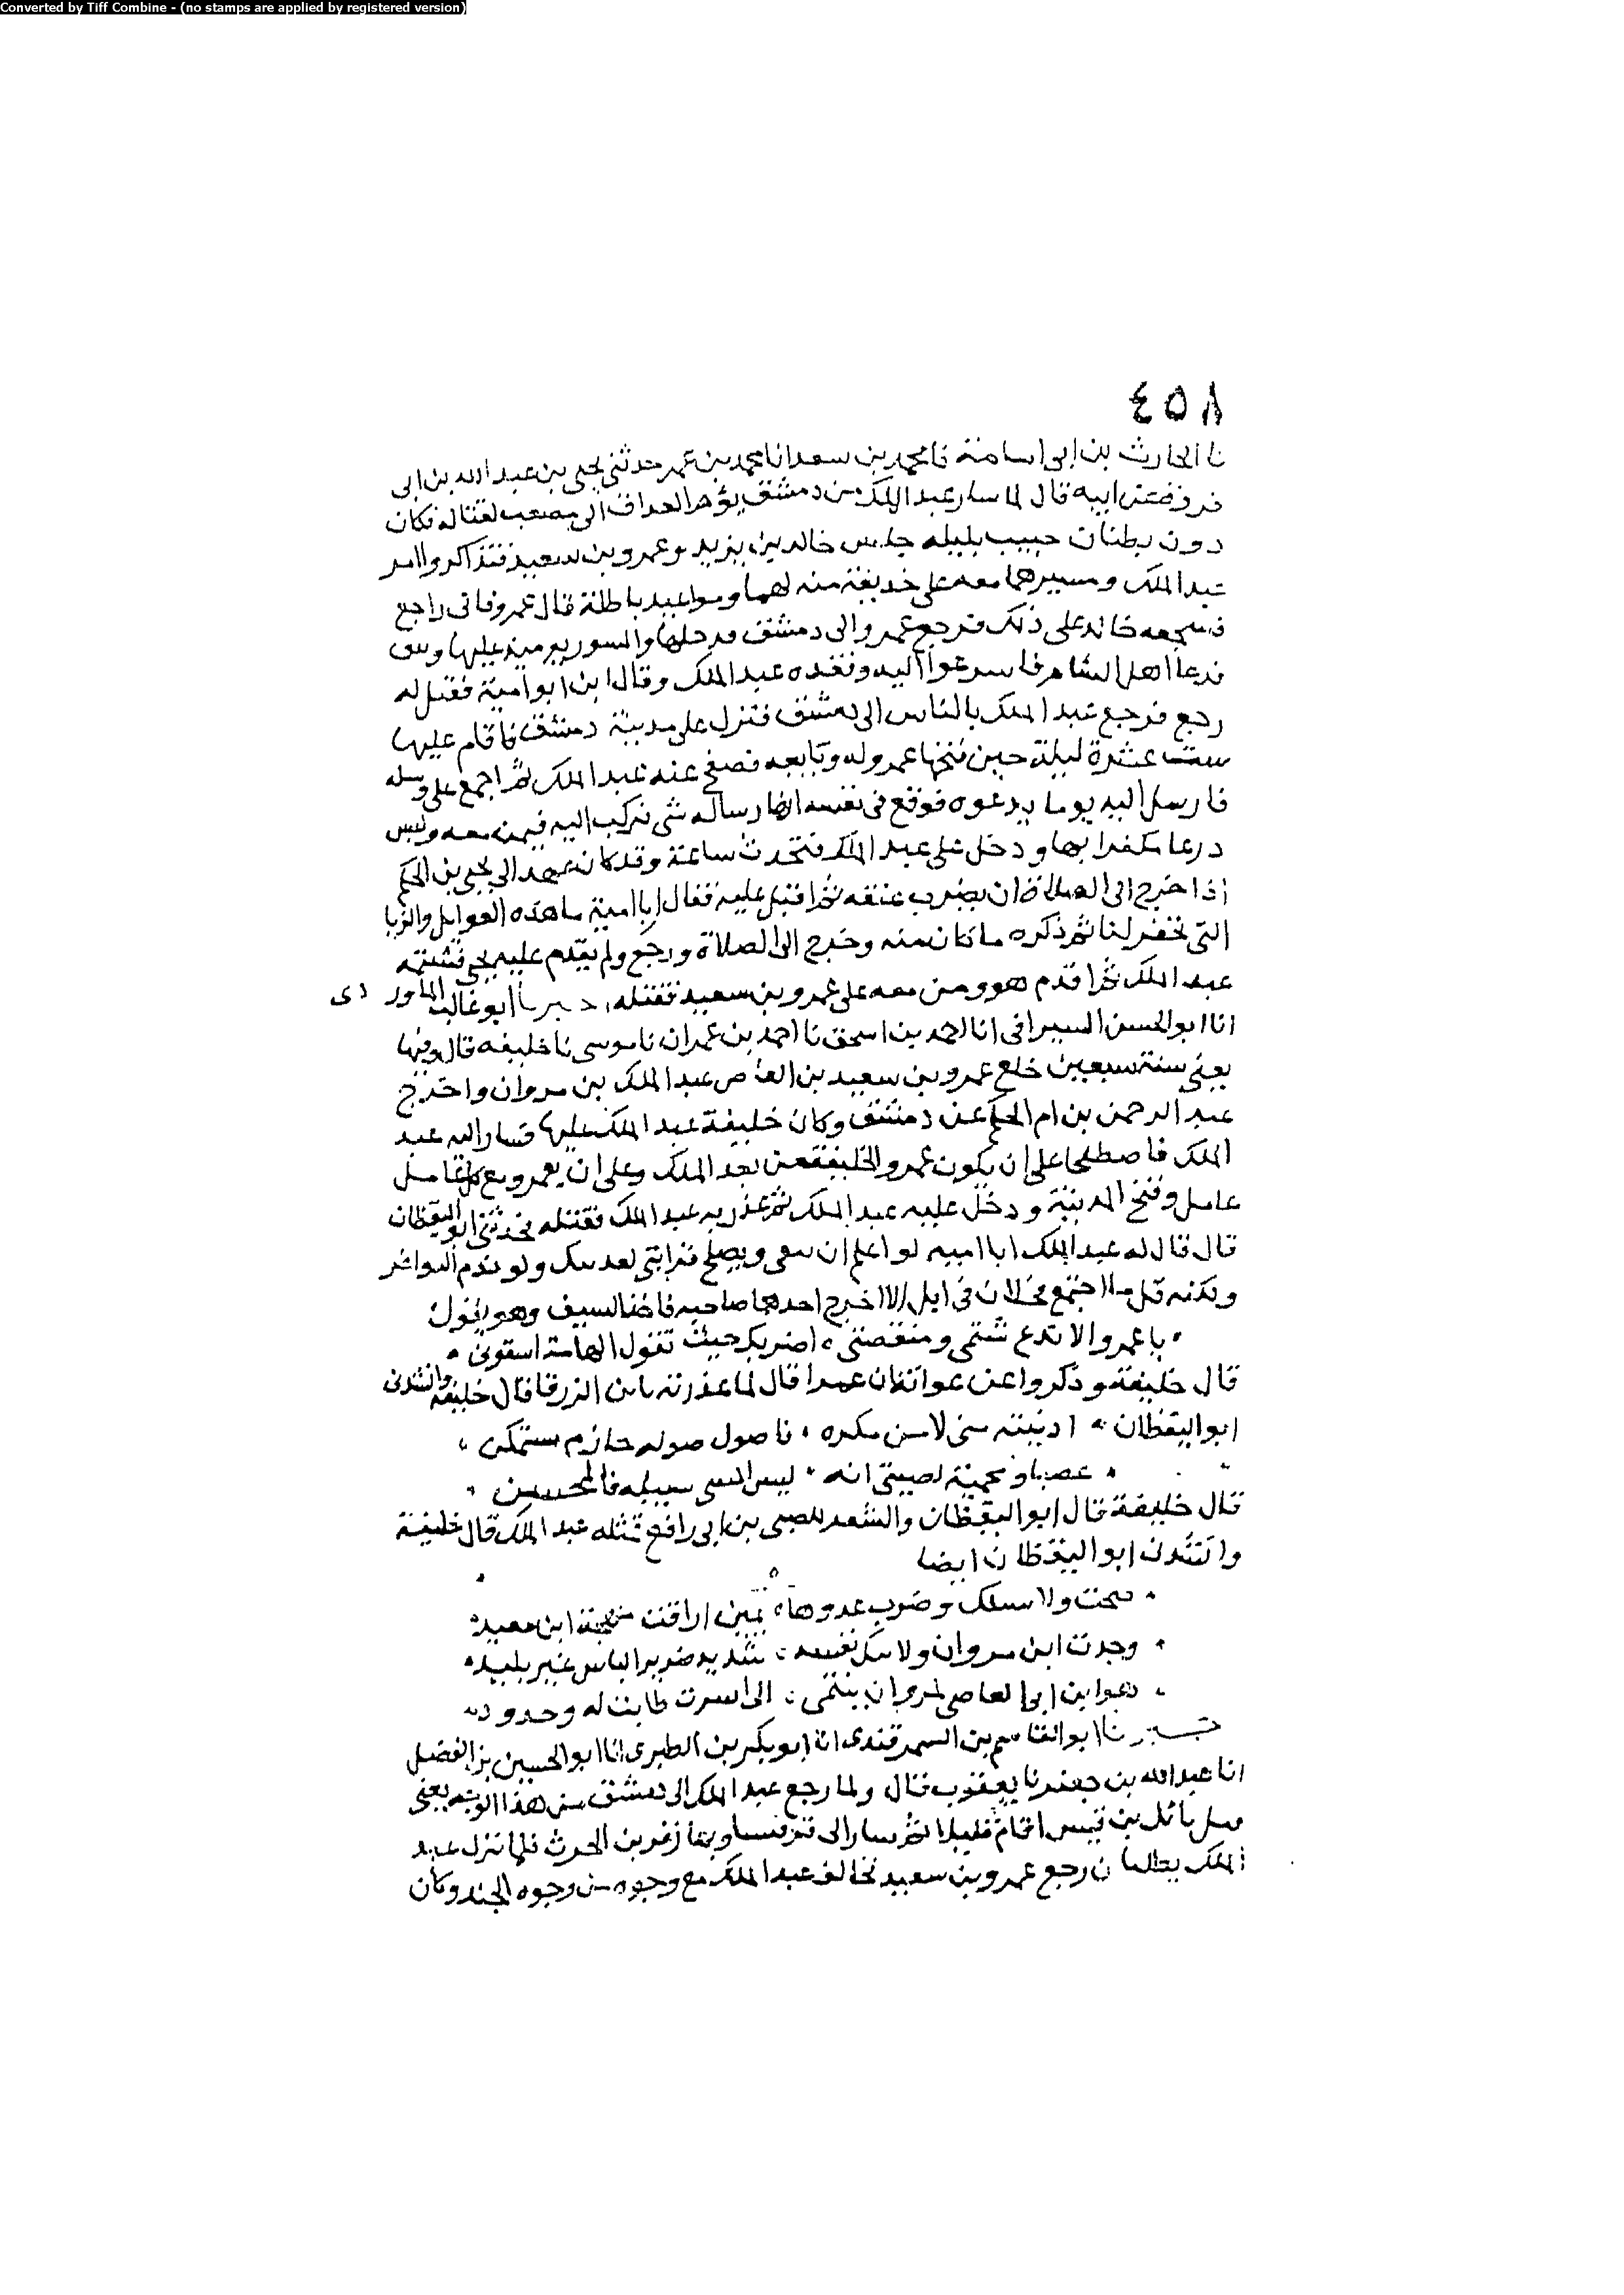 Converted by Tiff Combine - (no stamps are applied by registered version)
٤٥٨
نا الحارث بن ابى اسامة نا محمد بن سعد انا محمد بن عمر حدثنى يحيى بن عبد الله بن ابى
فروة عن ابيه قال لما سار عبد الملك من دمشق يؤم العراق الى مصعب لقتاله فكان
دون بطنان حبيب بليله جلس خالد بن يزيد وعمرو بن سعيد فتذاكروا امر
عبد الملك ومسيرهما معه على خديعة منه لهما ومواعيد باطلة قال عمرو فانى راجع
فشجعه خالد على ذلك فرجع عمرو الى دمشق فدخلها والسور يومئذ عليها
فدعا اهل الشام فاسرعوا اليه وفقده عبد الملك وقال ابن ابو امية فقيل له
رجع فرجع عبد الملك بالناس الى دمشق فنزل على مدينة دمشق فاقام عليها
ست عشرة ليلة حين فتحها عمرو له وتابعه فصفح عنه عبد الملك ثم اجمع على
فارسل اليه يوما يدعوه فوقع فى نفسه انها رساله شى فركب اليه فيمن معه ولبس
درعا مكفرا بها ودخل على عبد الملك فتحدث ساعة وقد كان عهد الى يحيى بن الحكم
اذا خرج الى الصلاة ان يضرب عنقه ثم اقبل عليه فقال ابا امية ما هذه الغوايل والزبا
التى تحفر لنا ثم ذكره ما كان منه وخرج الى الصلاة ورجع ولم يقدم عليه يحيى فشتمه
عبد الملك ثم اقدم هو ومن معه على عمرو بن سعيد فقتله ابو غالب الماوردى
انا ابو الحسن السيرافى انا احمد بن اسحق نا احمد بن عمران نا موسى نا خليفه قال وفيها
يعنى سنة سبعين خلع عمرو بن سعيد بن العاص عبد الملك بن مروان واخرج
عبد الرحمن بن ام الحكم عن دمشق وكان خليفة عبد الملك عليها فسار اليه عبد
الملك فاصطلحا على ان يكون عمرو الخليفة من بعد الملك وعلى ان لعمرو مع كل عامل
عامل وفتح المدينة ودخل عليه عبد الملك ثم غدر به عبد الملك فقتله فحدثنى ابو اليقظان
قال قال له عبد الملك ابا اميه لو اعلم ان تبقى ويصلح قرابتى
ولكنه قل ما اجتمع فحلان فى ابل الا اخرج احدهما صاحبه السيف وهو يقول
يا عمرو الا تدع شتمى ومنقصتى اضربك حيث تقول الهامة اسقونى
قال خليفة وذكروا عن عوانة ان عمرا قال لما غدر به يا بن الزرقا قال خليفة وانشدنى
ابو اليقظان ادنيته منى لاسن مكره فاصول صوله حازم مستمكن
غضبا ومحمية لدينى انه ليس المسى سبيله كالمحسن
قال خليفة قال ابو اليقظان والشعر بن ابى رافع قتله عبد الملك قال خليفة
وانشدنى ابو اليقظان ايضا
صحت ولا وضرب عدوها يمين اراقت مهجة ابن سعيد
وجدت ابن مروان ولا نفسه شديد ضرير الباس غير بليد
هو ابن ابى العاصى لمروان ينتمى الى اسرت طابت له وجدود
انا ابو القاسم بن السمرقندى انا ابو بكر بن الطبرى انا ابو الحسين بن الفضل
انا عبد الله بن جعفر نا يعقوب قال ولما رجع عبد الملك الى دمشق من هذا الوجه يعنى
بن قيس اقام قليلا ثم سار الى قرقيسا وبها زفر بن الحرث فلما نزل عبد
الملك بطنان رجع عمرو بن سعيد فخالف عبد الملك مع وجوه من وجوه الجند وكان